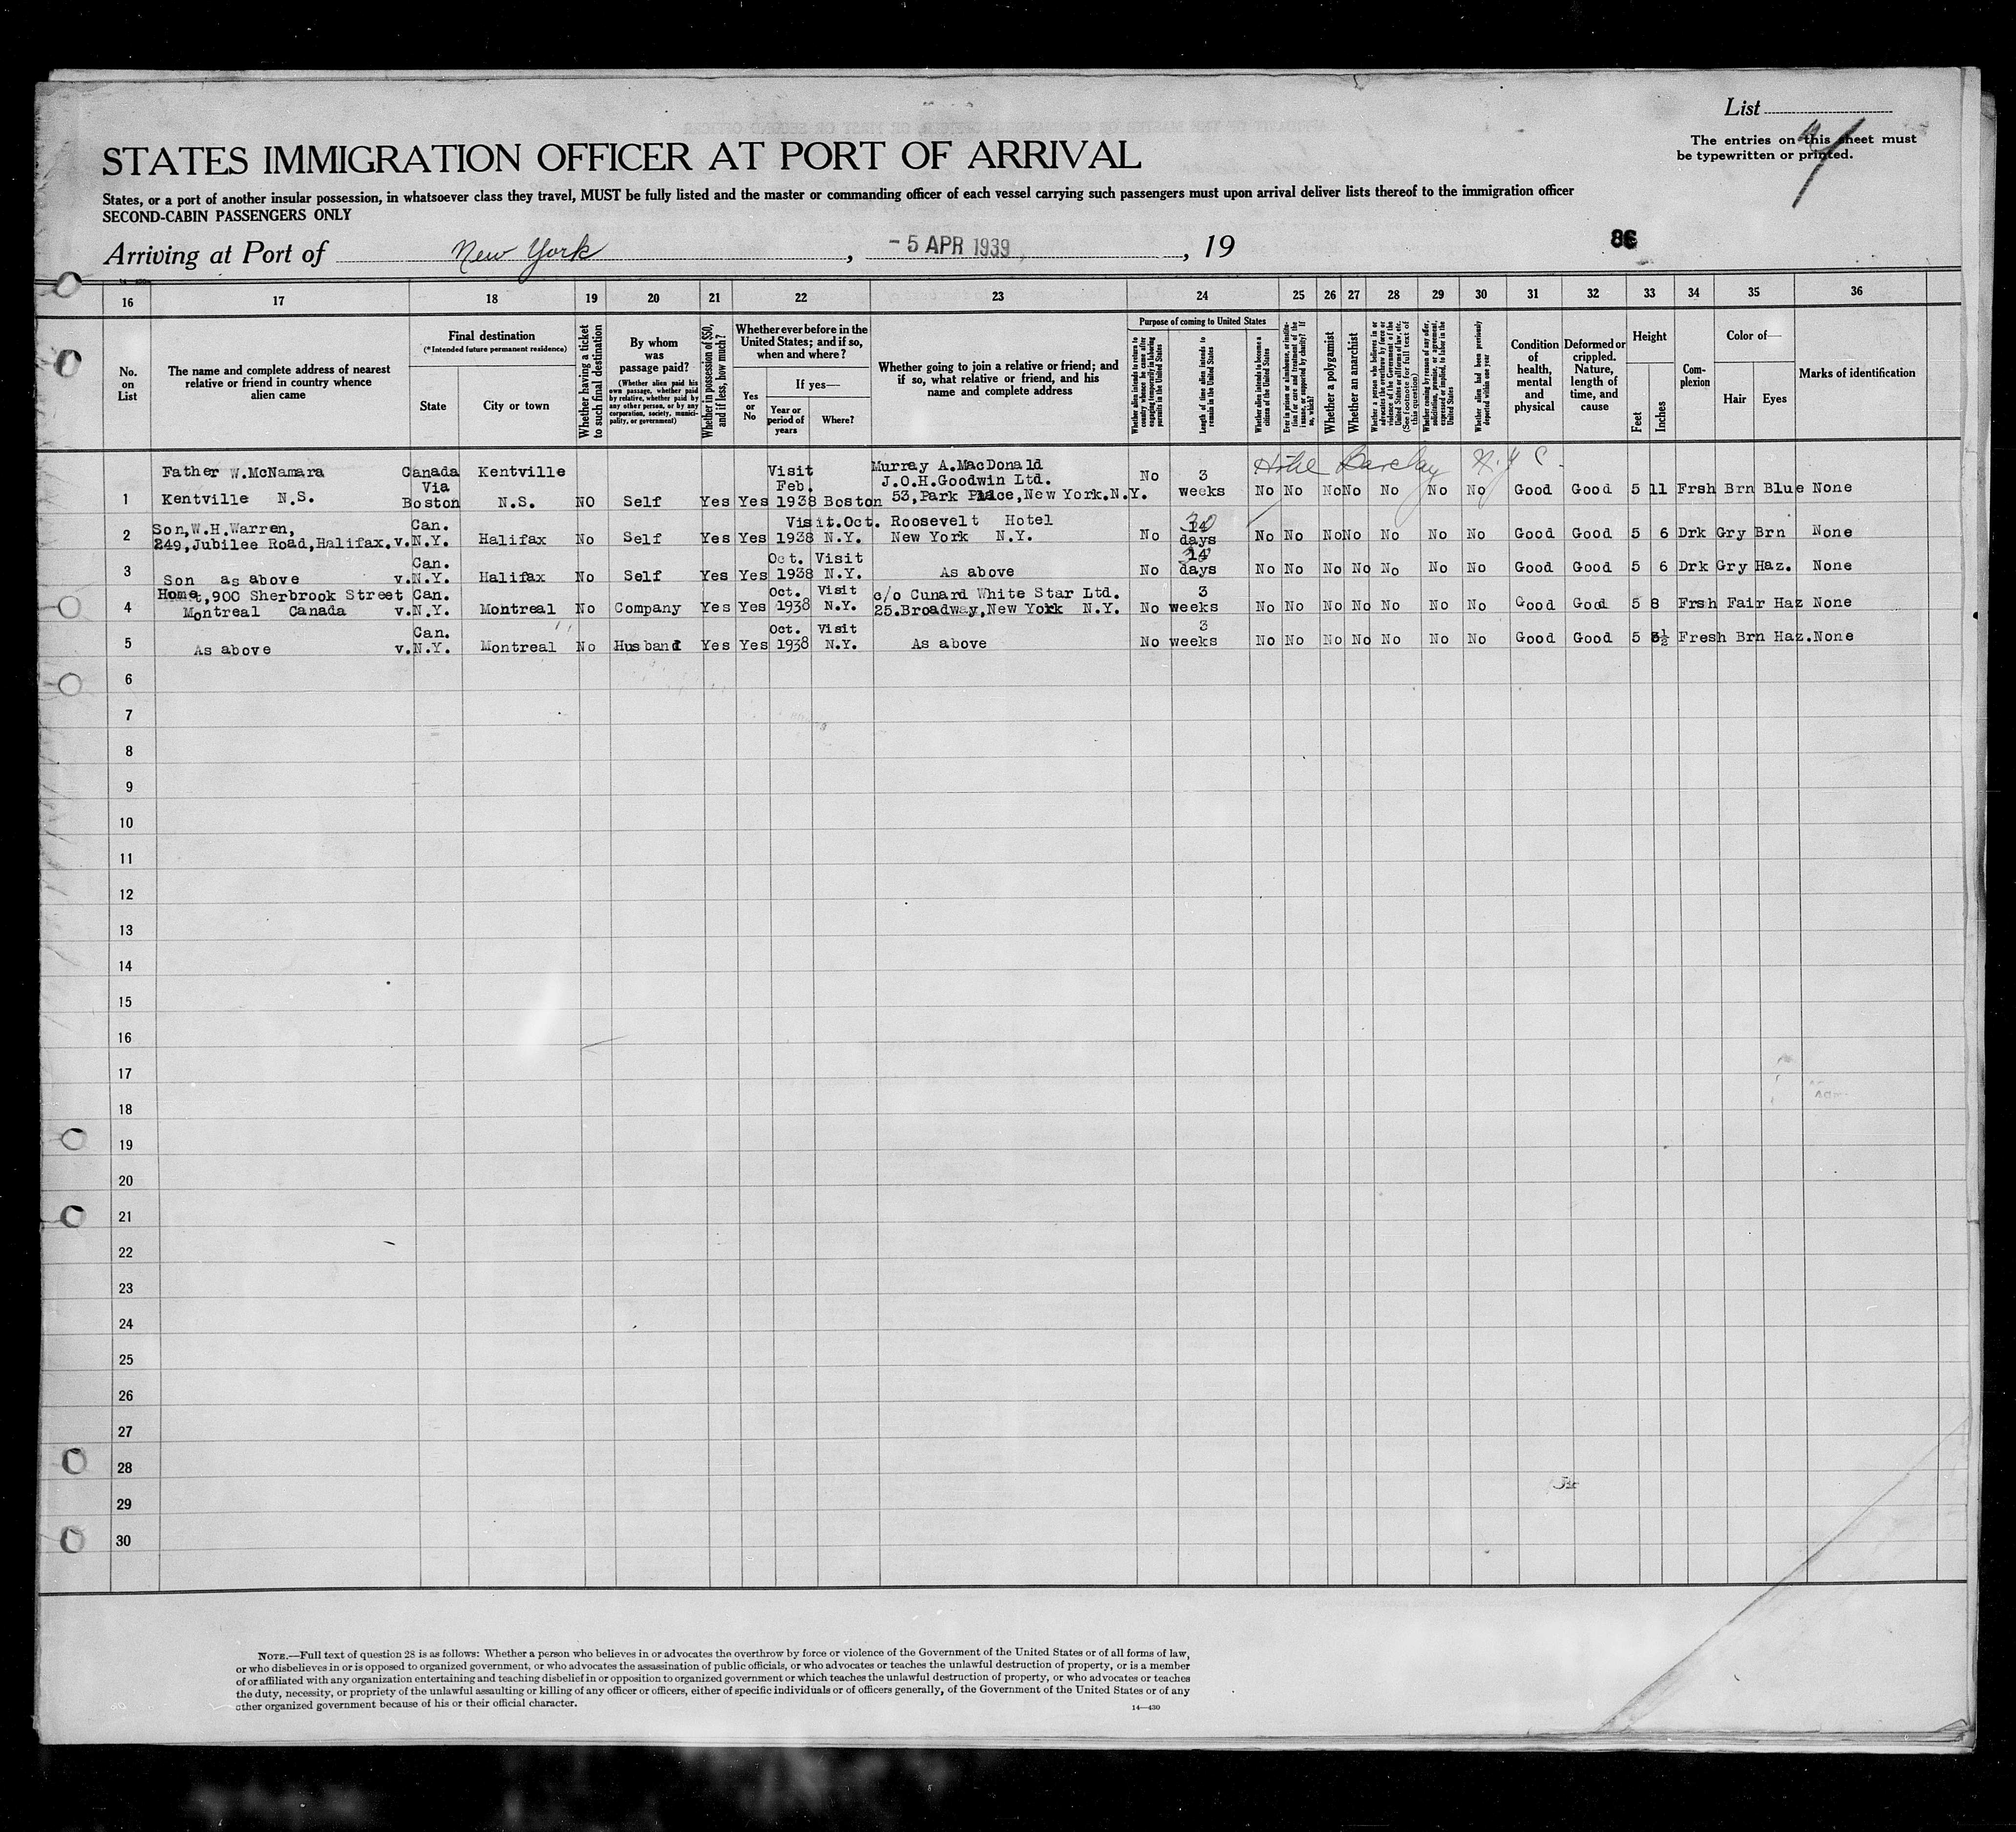 List
The entries on this sheet must
be typewritten or printed.
STATES IMMIGRATION OFFICER AT PORT OF ARRIVAL
States, or a port of another insular possession, in whatsoever class they travel, MUST be fully listed and the master or commanding officer of each vessel carrying such passengers must upon arrival deliver lists thereof to the immigration officer
SECOND-CABIN PASSENGERS ONLY
Arriving at Port of New York, -5 APR 1939, 19
86
16 17 18 19 20 21 22 23 24 25 26 27 28 29 30 31 32 33 34 35 36
No. on List
The name and complete address of nearest relative or friend in country whence alien came
Final destination
(*Intended future permanent residence)
State
City or town
Whether having a ticket to such final destination
By whom was passage paid?
(Whether alien paid his own passage, whether paid by relative, whether paid by any other person, or by any corporation, society, municipality, or government)
Whether in possession of $50, and if less, how much?
Whether ever before in the United States; and if so, when and where?
Yes or No
If yes—
Year or period of years
Where?
Whether going to join a relative or friend; and if so, what relative or friend, and his name and complete address
Purpose of coming to United States
Whether alien intends to return to country whence he came after engaging temporarily in laboring pursuits in the United States
Length of time alien intends to remain in the United States
Whether alien intends to become a citizen of the United States
Ever in prison or almshouse, or institution for care and treatment of the insane, or supported by charity? If so, which?
Whether a polygamist
Whether an anarchist
Whether a person who believes in or advocates the overthrow by force or violence of the Government of the United States or all forms of law, etc. (See footnote for full text of this question)
Whether coming by reason of any offer, solicitation, promise, or agreement, expressed or implied, to labor in the United States
Whether alien had been previously deported within one year
Condition of health, mental and physical
Deformed or crippled. Nature, length of time, and cause
Height
Feet
Inches
Complexion
Color of—
Hair
Eyes
Marks of identification
Hotel Barclay N.Y.C.
1 Father W.McNamara Kentville N.S. Canada Via Boston Kentville N.S. NO Self Yes Yes Visit Feb. 1938 Boston Murray A.MacDonald J.O.H.Goodwin Ltd. 53,Park Place,New York.N.Y. No 3 weeks No No No No No No No Good Good 5 11 Frsh Brn Blue None
2 Son,W.H.Warren, 249,Jubilee Road,Halifax. Can. v.N.Y. Halifax No Self Yes Yes Visit.Oct. 1938 N.Y. Roosevelt Hotel New York N.Y. No 30 14 days No No No No No No No Good Good 5 6 Drk Gry Brn None
3 Son as above Can. v.N.Y. Halifax No Self Yes Yes Oct. 1938 Visit N.Y. As above No 30 14 days No No No No No No No Good Good 5 6 Drk Gry Haz. None
4 Home,900 Sherbrook Street Montreal Canada Can. v.N.Y. Montreal No Company Yes Yes Oct. 1938 Visit N.Y. c/o Cunard White Star Ltd. 25.Broadway,New York N.Y. No 3 weeks No No No No No No No Good Good 5 8 Frsh Fair Haz None
5 As above Can. v.N.Y. Montreal No Husband Yes Yes Oct. 1938 Visit N.Y. As above No 3 weeks No No No No No No No Good Good 5 3½ Fresh Brn Haz. None
6
7
8
9
10
11
12
13
14
15
16
17
18
19
20
21
22
23
24
25
26
27
28
29
30
NOTE.—Full text of question 28 is as follows: Whether a person who believes in or advocates the overthrow by force or violence of the Government of the United States or of all forms of law,
or who disbelieves in or is opposed to organized government, or who advocates the assassination of public officials, or who advocates or teaches the unlawful destruction of property, or is a member
of or affiliated with any organization entertaining and teaching disbelief in or opposition to organized government or which teaches the unlawful destruction of property, or who advocates or teaches
the duty, necessity, or propriety of the unlawful assaulting or killing of any officer or officers, either of specific individuals or of officers generally, of the Government of the United States or of any
other organized government because of his or their official character.
14—430